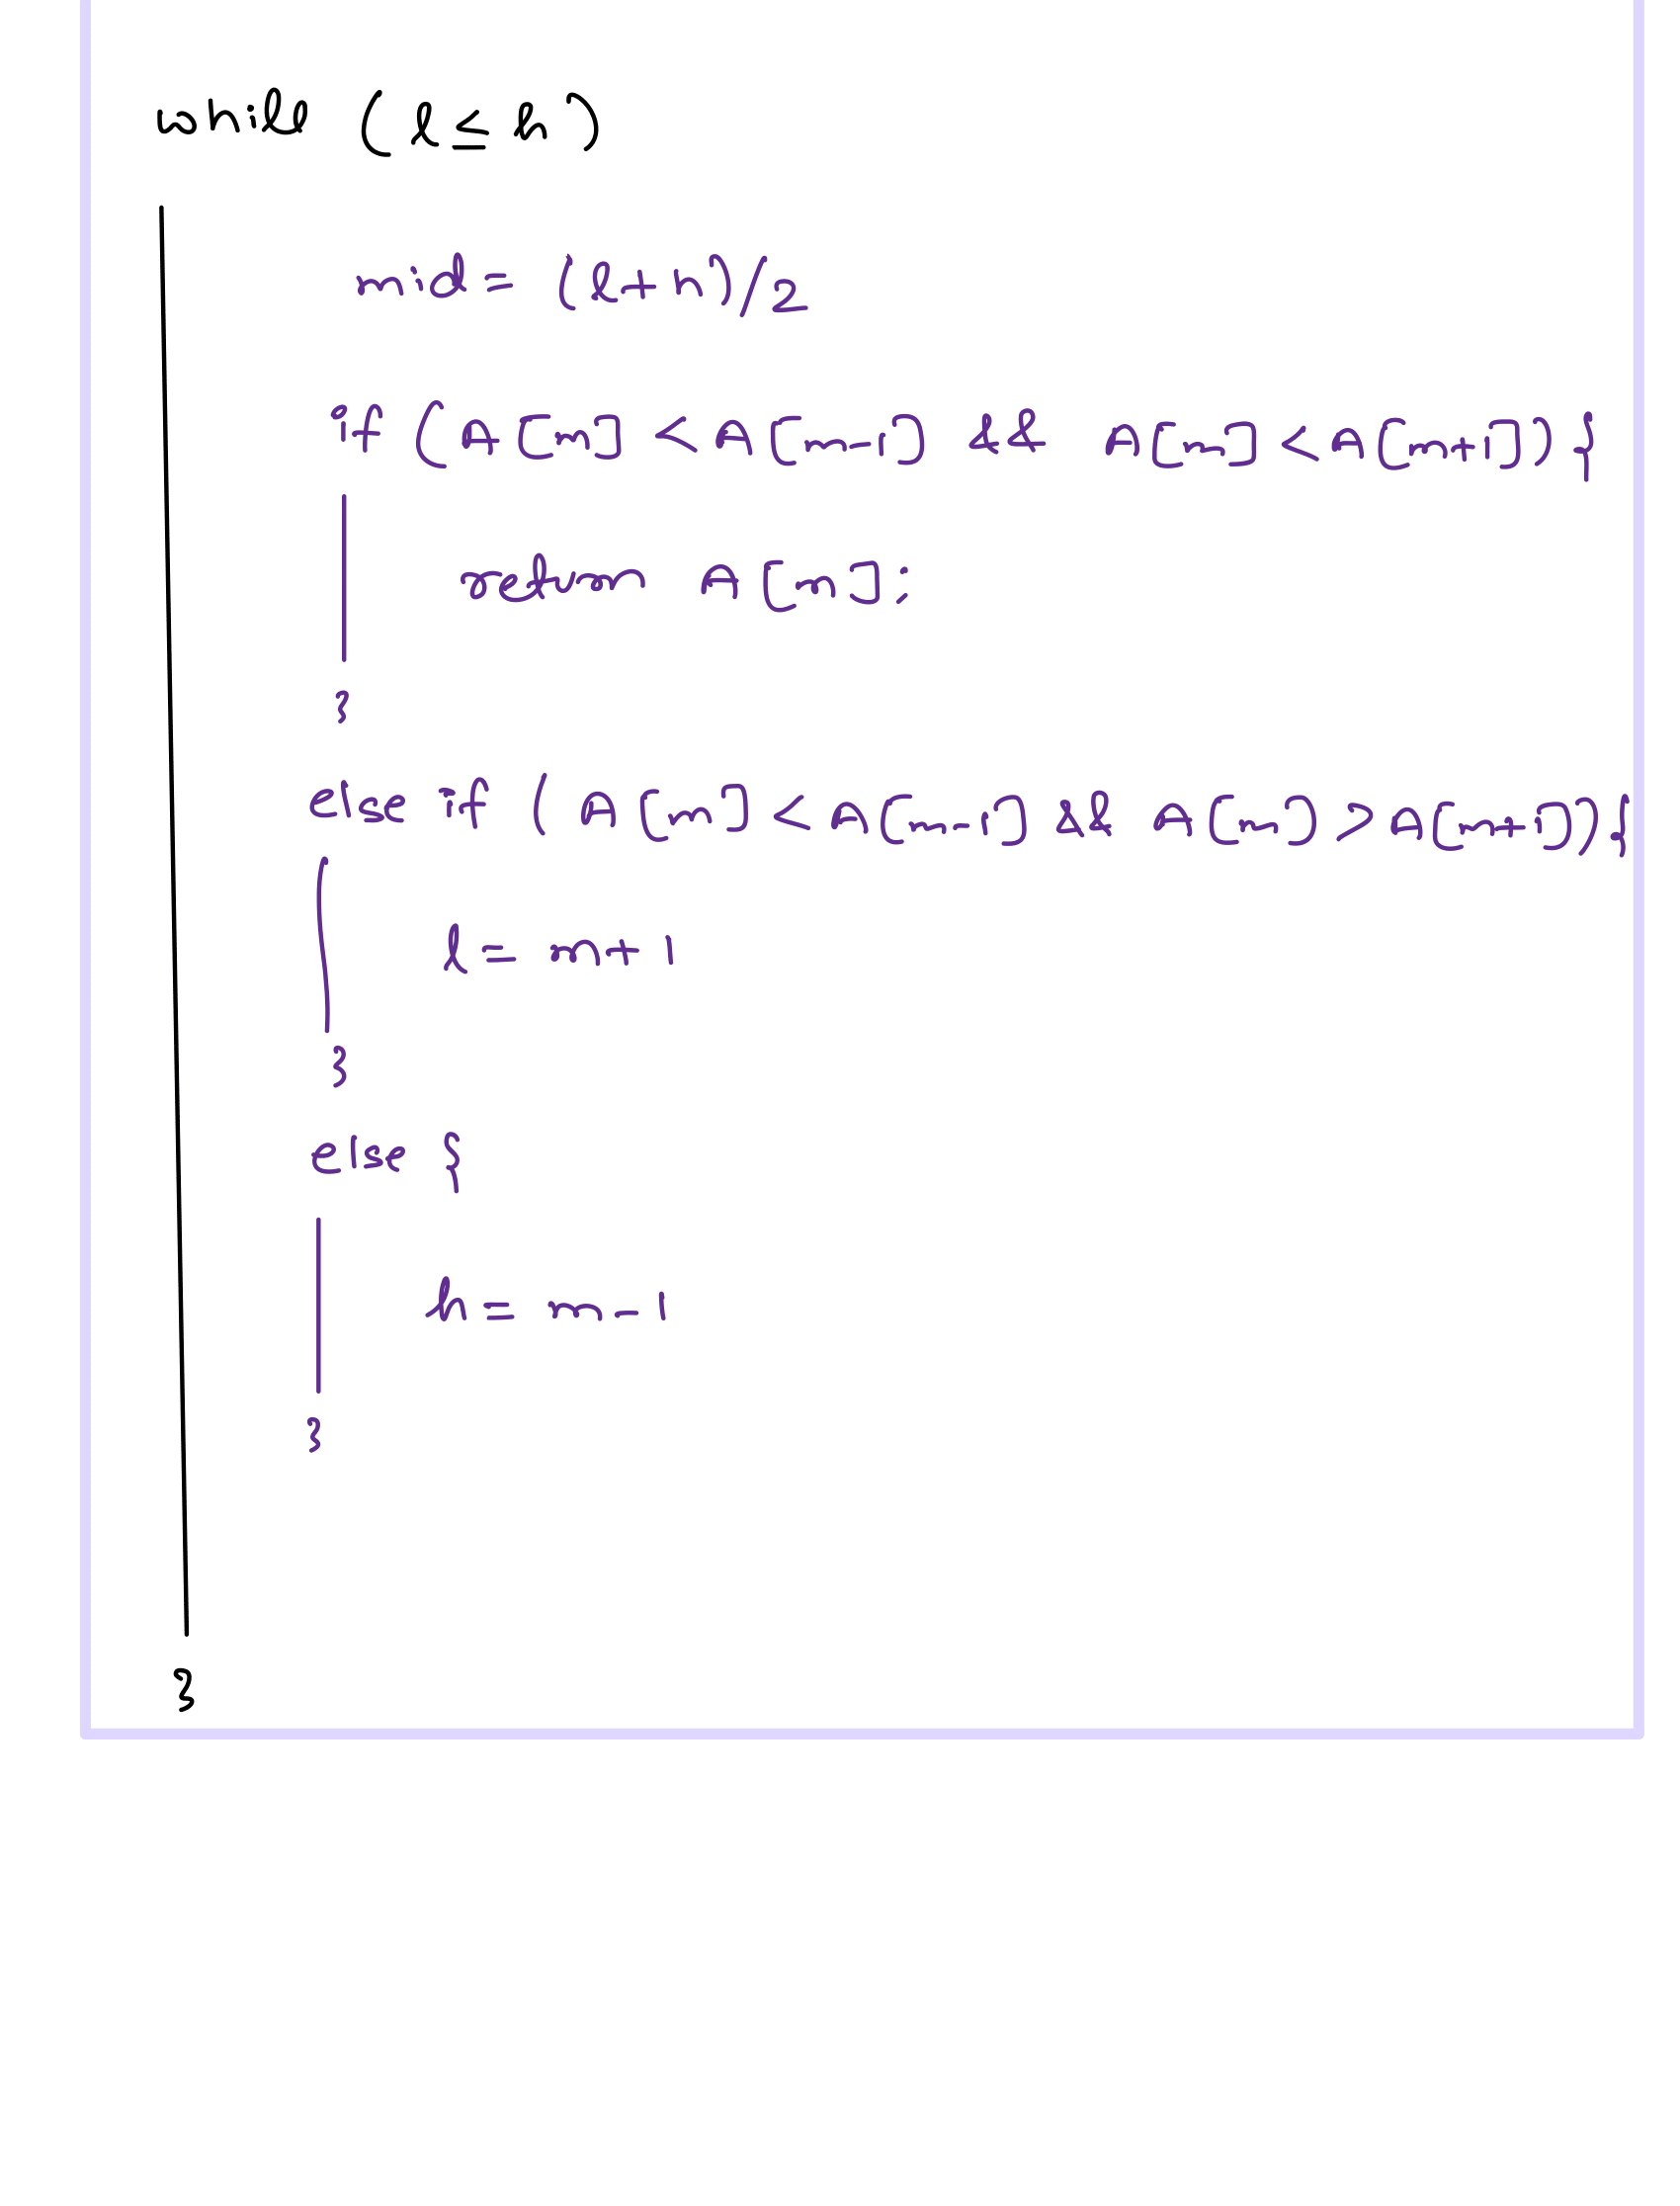 while (l ≤ h)
mid = (l+h)/2
if (A[m] < A[m-1] && A[m] < A[m+1]) {
return A[m];
}
else if (A[m] < A[m-1] && A[m] > A[m+1]) {
l = m+1
}
else {
h = m-1
}
}